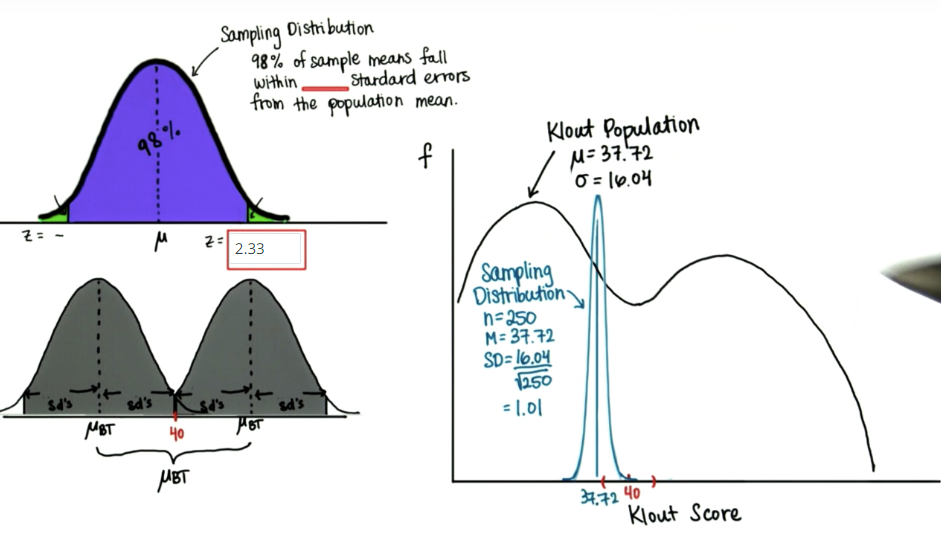 Sampling Distribution
98% of sample means fall
within ____ standard errors
from the population mean.
98%
z = -
μ
z =
2.33
sd's
sd's
sd's
sd's
μBT
40
μBT
μBT
f
Klout Population
μ = 37.72
σ = 16.04
Sampling
Distribution
n = 250
M = 37.72
SD = 16.04
√250
= 1.01
37.72
40
Klout Score